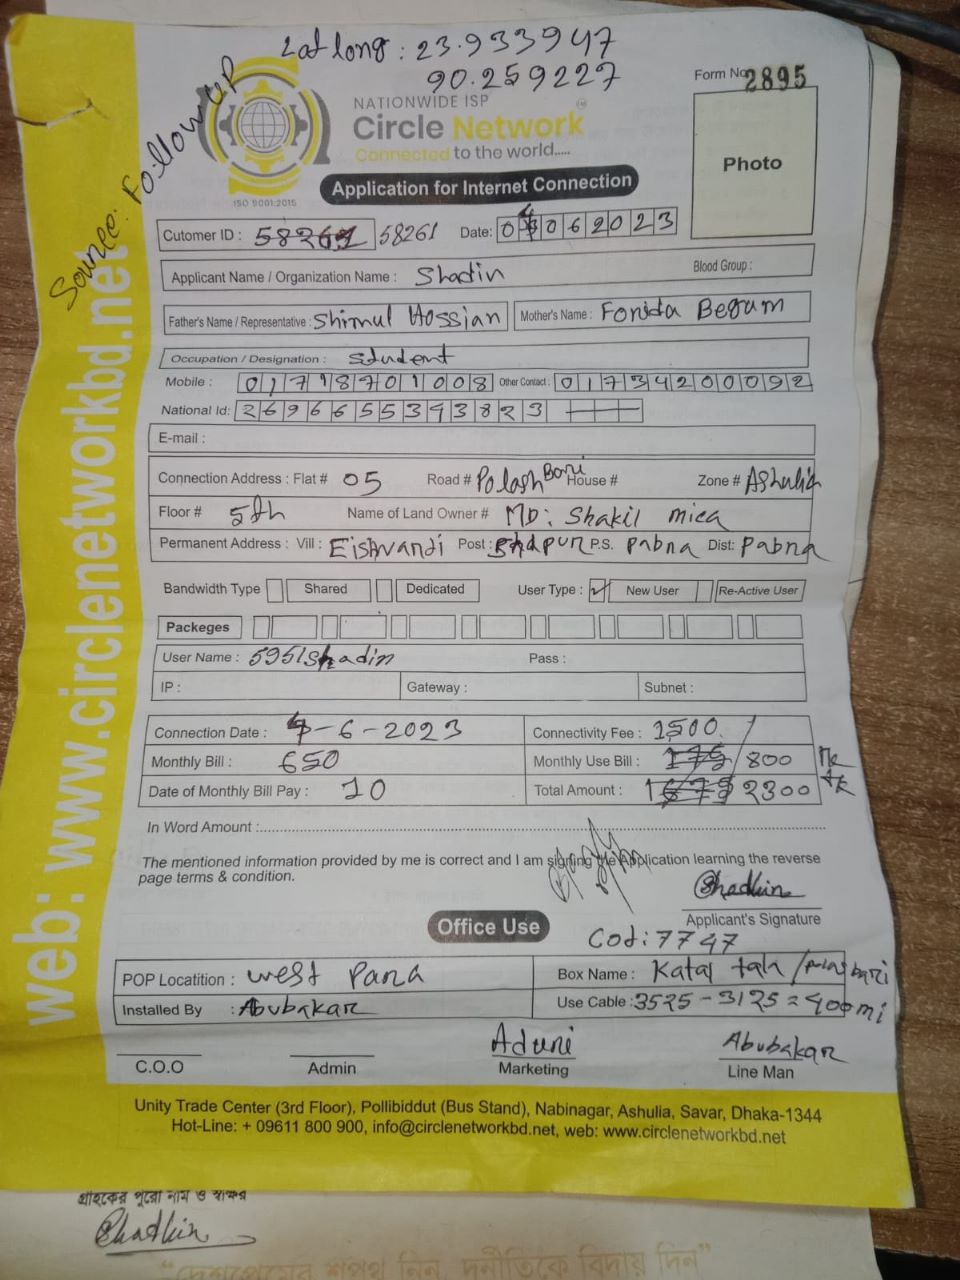 Lat long : 23.933947
90.259227
Source: Follow UP
Form No. 2895
NATIONWIDE ISP
Circle Network
Connected to the world.....
ISO 9001:2015
Photo
Application for Internet Connection
Cutomer ID : 58261 Date: 04062023
Applicant Name / Organization Name : Shadin Blood Group :
Father's Name / Representative : Shimul Hossian Mother's Name : Forida Begum
Occupation / Designation : Student
Mobile : 01718701008 Other Contact : 01734200092
National Id: 2696655393823
E-mail :
Connection Address : Flat # 05 Road # Polash Bari House # Zone # Ashulia
Floor # 5th Name of Land Owner # MD: Shakil mica
Permanent Address : Vill : Eishvandi Post : P.S. Pabna Dist: Pabna
Bandwidth Type Shared Dedicated User Type : ✓ New User Re-Active User
Packeges
User Name : 5951shadin Pass :
IP : Gateway : Subnet :
Connection Date : 4-6-2023 Connectivity Fee : 1500
Monthly Bill : 650 Monthly Use Bill : 175 / 800
Date of Monthly Bill Pay : 10 Total Amount : 1675 2300
In Word Amount :
The mentioned information provided by me is correct and I am signing the Application learning the reverse
page terms & condition.
Shadhin
Applicant's Signature
Office Use
Cod: 7747
POP Locatition : West Para Box Name : Katal tala
Installed By : Abubakar Use Cable : 3525 - 3125 = 400 mi
Abubakar
C.O.O Admin Marketing Line Man
Unity Trade Center (3rd Floor), Pollibiddut (Bus Stand), Nabinagar, Ashulia, Savar, Dhaka-1344
Hot-Line: + 09611 800 900, info@circlenetworkbd.net, web: www.circlenetworkbd.net
web: www.circlenetworkbd.net
গ্রাহকের পুরো নাম ও স্বাক্ষর
Shadhin
"দেশপ্রেমের শপথ নিন, দুর্নীতিকে বিদায় দিন"